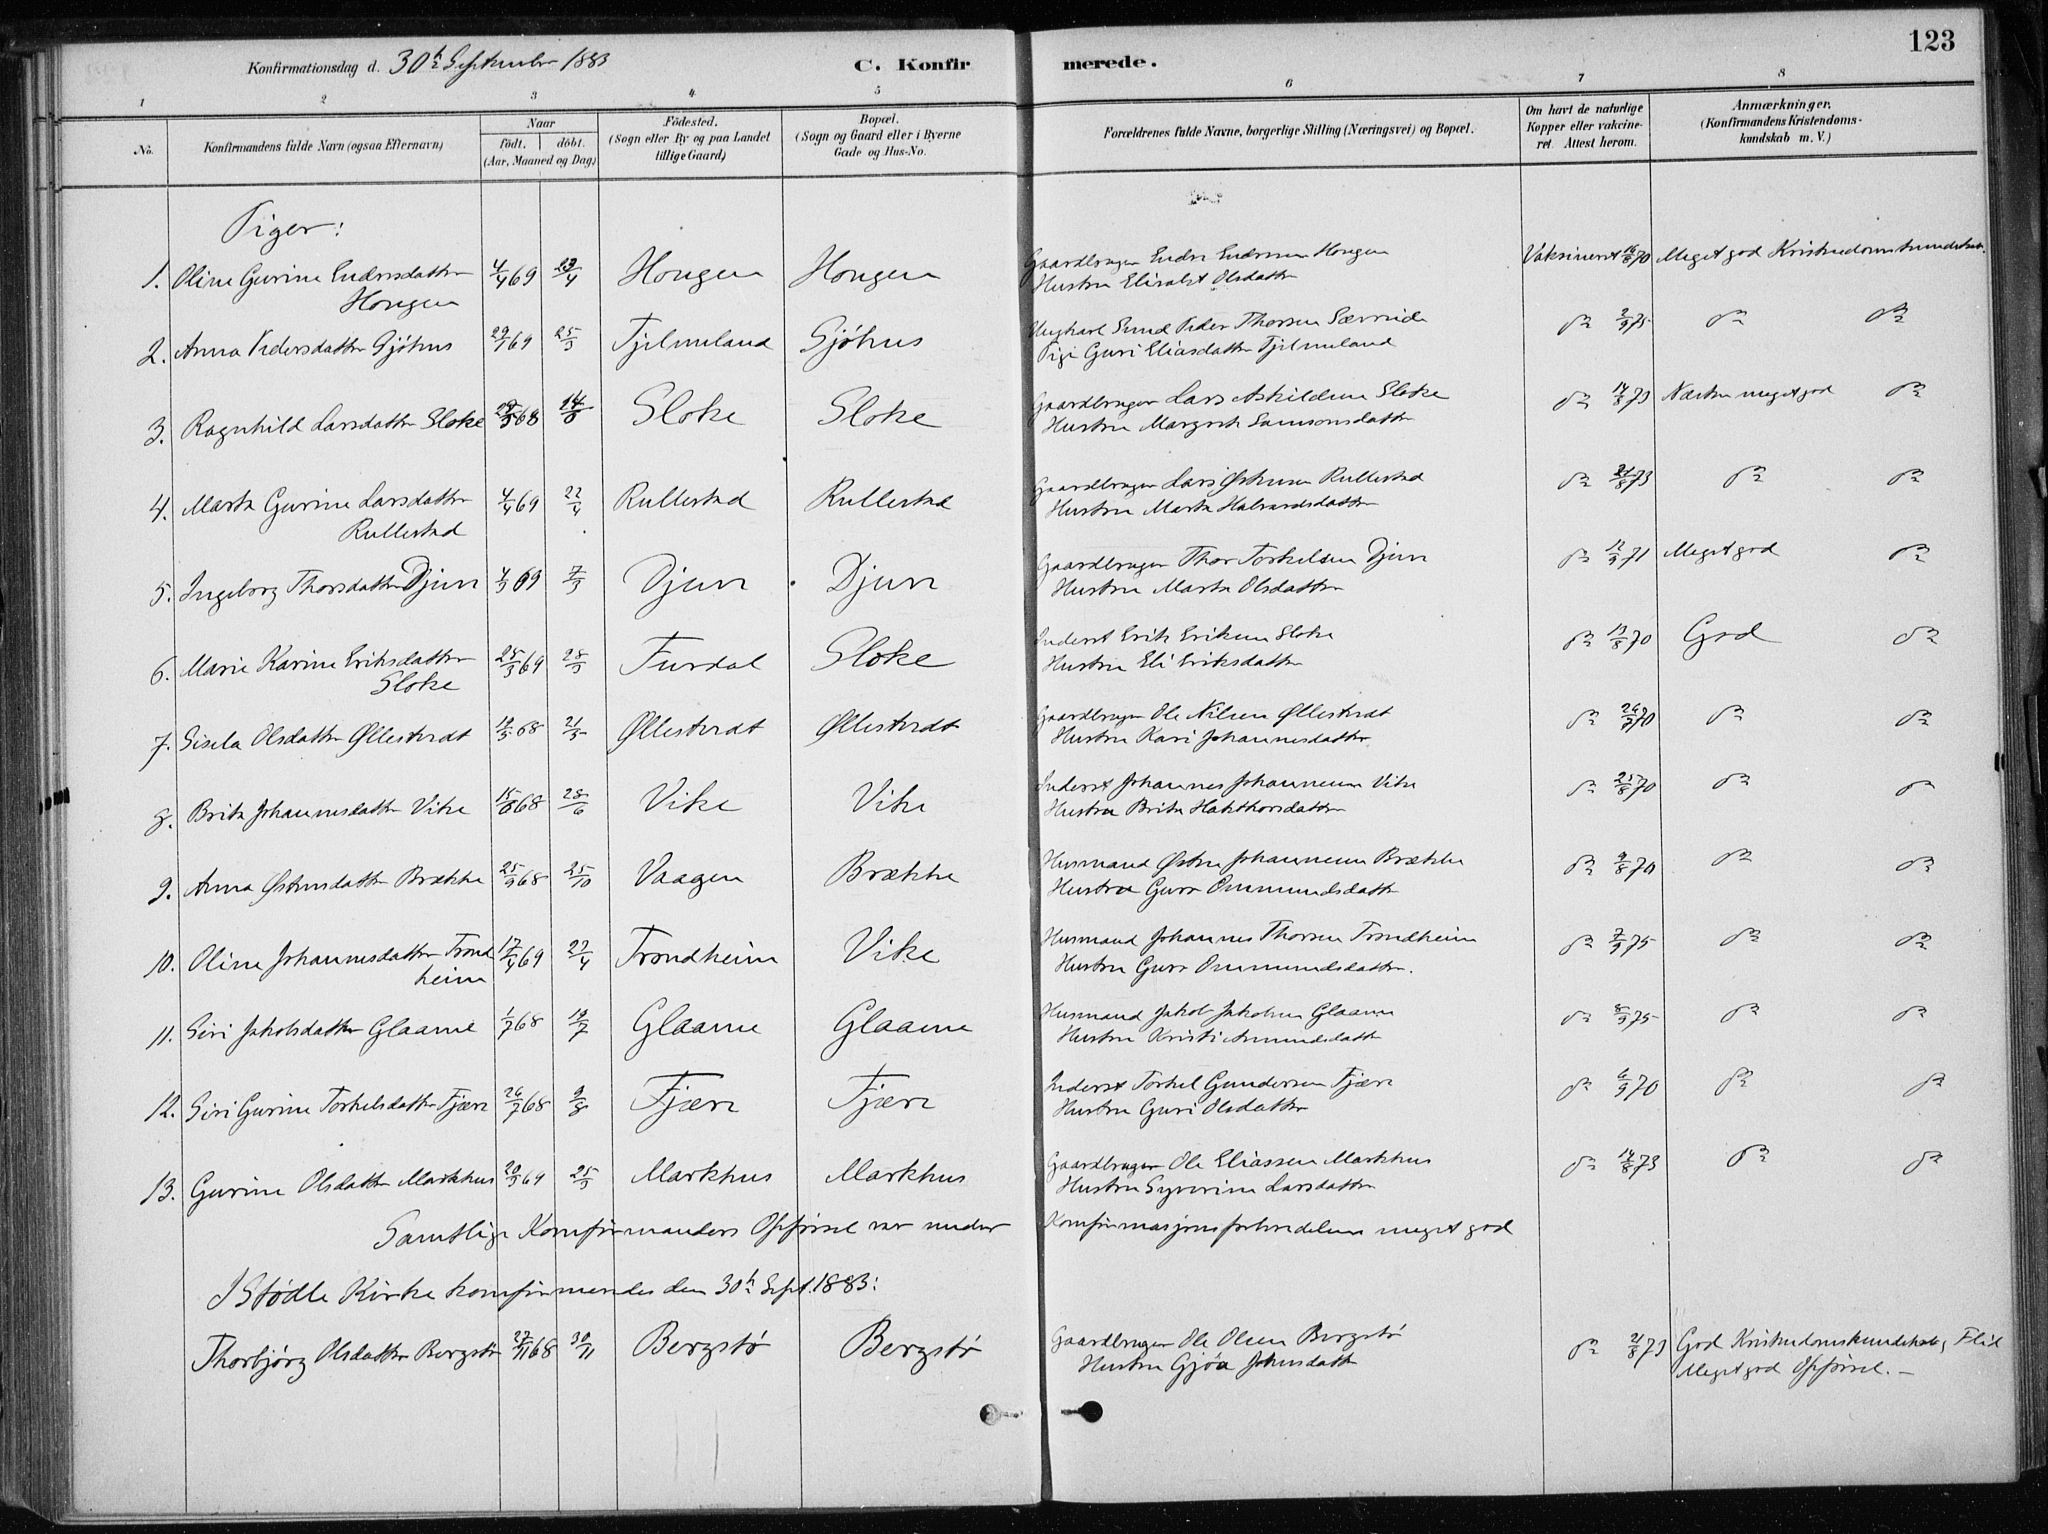 123
Konfirmationsdag d. 30h September 1883 C. Konfirmerede.
1 2 3 4 5 6 7 8
No. Konfirmandens fulde Navn (ogsaa Efternavn) Naar født. døbt. (Aar, Maaned og Dag) Fødested. (Sogn eller By og paa Landet tillige Gaard) Bopæl. (Sogn og Gaard eller i Byerne Gade og Hus-No. Forældrenes fulde Navne, borgerlige Stilling (Næringsvei) og Bopæl. Om havt de naturlige Kopper eller vakcineret. Attest herom. Anmærkninger. (Konfirmandens Kristendomskundskab m. V.)
Piger:
1. Oline Gurine Endresdatter 4/4 69 23/4 Hougen Hougen Gaardbruger Endre Endresen Hougen Vaksineret 16/8 70 Meget god Kristendomskundskab
Hougen Hustru Elisabet Olsdatter
2. Anna Pedersdatter Gjøhus 29/1 69 25/3 Fjelmeland Gjøhus Ungkarl Peder Thorsen Særvide do 2/9 75 do do
Pige Guri Eliasdatter Fjelmeland
3. Ragnhild Larsdatter Sloke 68 Sloke Sloke Gaardbruger Lars Askildsen Sloke do 14/8 73 Næsten meget god do
Hustru Margrete Samsonsdatter
4. Marta Gurine Larsdatter 4/4 69 22/4 Rullestad Rullestad Gaardbruger Lars Østensen Rullestad do 21/8 73 do do
Rullestad Hustru Marta Halvardsdatter
5. Ingeborg Thorsdatter Djuv 4/3 69 7/3 Djuv Djuv Gaardbruger Thor Torkelsen Djuv do 12/9 71 Meget god do
Hustru Marta Olsdatter
6. Marie Karine Eriksdatter 25/3 69 28/3 Furdal Sloke Inderst Erik Eriksen Sloke do 13/8 70 God do
Sloke Hustru Eli Eriksdatter
7. Sisela Olsdatter Øllestvedt 19/5 68 21/5 Øllestvedt Øllestvedt Gaardbruger Ole Nilsen Øllestvedt do 26/7 70 do do
Hustru Kari Johannesdatter
8. Brita Johannesdatter Vike 15/6 68 28/6 Vike Vike Inderst Johannes Johannesen Vike do 25/8 70 do do
Hustru Brita Hakthorsdatter
9. Anna Østensdatter Brække 25/9 68 25/10 Vaagen Brække Husmand Østen Johannesen Brække do 9/8 70 do do
Hustru Guro Ommundsdatter
10. Oline Johannesdatter Trond 17/4 69 27/4 Trondheim Vike Husmand Johannes Thorsen Trondheim do 7/9 75 do do
heim Hustru Guro Ommundsdatter.
11. Siri Jakobsdatter Glaame 1/7 68 19/7 Glaame Glaame Husmand Jakob Jakobsen Glaame do 8/9 75 do do
Hustru Kristi Amundsdatter
12. Siri Gurine Torkelsdatter Fjære 26/7 68 9/8 Fjære Fjære Inderst Torkel Gundersen Fjære do 6/9 70 do do
Hustru Guri Olsdatter
13. Gurine Olsdatter Markhus 20/3 69 25/3 Markhus Markhus Gaardbruger Ole Eliassen Markhus do 14/8 73 do do
Hustru Syverine Larsdatter
Samtlige Konfirmanders Opførsel var under Konfirmasjonsforberedelsen meget god
I Stødle Kirke konfirmeredes den 30h Sept. 1883:
Thorbjørg Olsdatter Bergstø 27/11 68 30/11 Bergstø Bergstø Gaardbruger Ole Olsen Bergstø do 21/8 73 God Kristendomskundskab, Flid
Hustru Gjøa Johnsdatter Meget god Opførsel. –